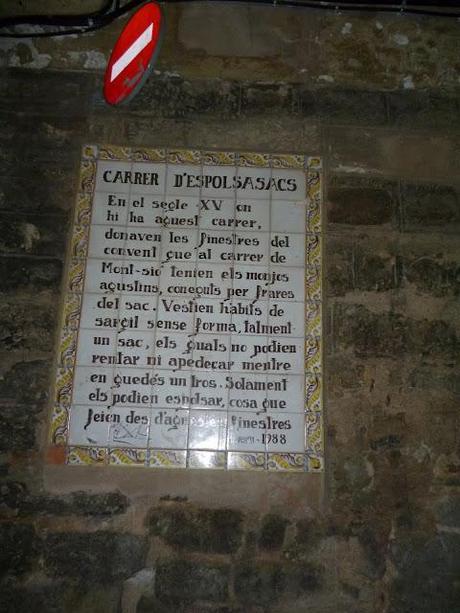 CARRER D'ESPOLSASACS
En el segle XV on
hi ha aquest carrer,
donaven les finestres del
convent que al carrer de
Mont-sió tenien els monjos
agustins, coneguts per frares
del sac. Vestien hàbits de
sargil sense forma, talment
un sac, els quals no podien
rentar ni apedaçar mentre
en quedés un tros. Solament
els podien espolsar, cosa que
feien des d'aquestes finestres
1988